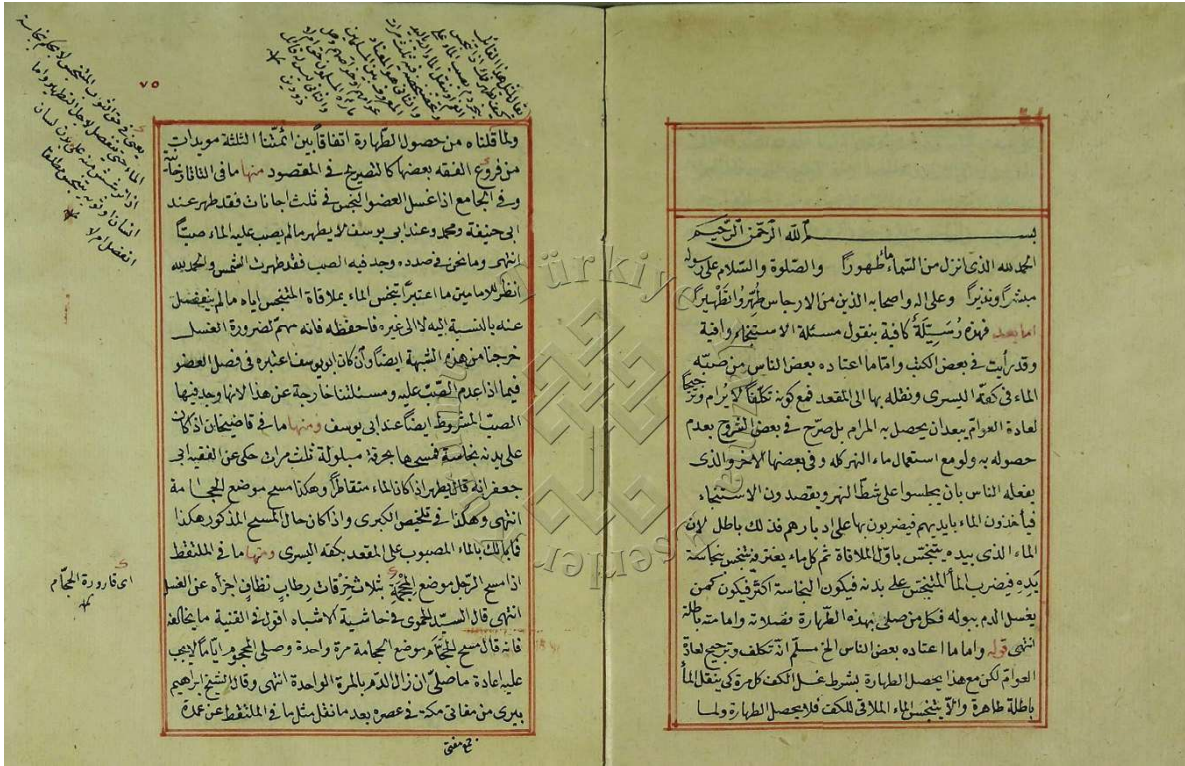 بسم الله الرحمن الرحيم
الحمد لله الذى انزل من السماء ماء طهورا والصلوة والسلام على رسوله
مبشرا ونذيرا وعلى اله واصحابه الذين من الارجاس طهروا تطهيرا
اما بعد فهذه رسيلة كافية بنقول مسئلة الاستنجاء وافية
وقد رأيت فى بعض الكتب واما ما اعتاده بعض الناس من صبه
الماء فى كفه اليسرى ونقله بها الى المقعد فمع كونه تكلفا لا يرام وترجيحا
لعادة العوام يبعد ان يحصل به المرام بل صرح فى بعض الشروح بعدم
حصوله به ولو مع استعمال ماء النهر كله وفى بعضها الاخر والذى
يفعله الناس بان يجلسوا على شط النهر ويقصدون الاستنجاء
فيأخذون الماء بايديهم فيضربون بها على ادبارهم فذلك باطل لان
الماء الذى بيده يتنجس باول الملاقاة ثم كل ماء يغترفه يتنجس بنجاسة
يده فيضرب الماء المتنجس على بدنه فيكون النجاسة اكثر فيكون كمن
يغسل الدم ببوله فكل من صلى بهذه الطهارة فصلاته وامامته باطلة
انتهى قوله واما ما اعتاده بعض الناس الخ مسلم انه تكلف وترجيح لعادة
العوام لكن مع هذا يحصل الطهارة بشرط غسل الكف كل مرة كى ينقل الماء
باطلة طاهرة والا يتنجس الماء الملاقى للكف فلا يحصل الطهارة ولما
٧٥
ولما قلناه من حصول الطهارة اتفاقا بين ائمتنا الثلثة مويدات
من فروع الفقه بعضها كالتصريح فى المقصود منها ما فى التاتارخانية
وفى الجامع اذا غسل العضو النجس فى ثلث اجانات فقد طهر عند
ابى حنيفة ومحمد وعند ابى يوسف لا يطهر مالم يصب عليه الماء صبا
انتهى وما نحن فى صدده وجد فيه الصب فقد ظهرت الشمس والحمد لله
انظر للامامين ما اعتبرا تنجس الماء بملاقاة المتنجس اياه مالم ينفصل
عنه بالنسبة اليه لا الى غيره فاحفظه فانه مهم لضرورة الغسل
خرجنا من هذه الشبهة ايضا وان كان ابو يوسف اعتبره فى فصل العضو
فيما اذا عدم الصب عليه ومسئلتنا خارجة عن هذا لانها وجد فيها
الصب المشروط ايضا عند ابى يوسف ومنها ما فى قاضيخان اذا كان
على بدنه نجاسة فمسحها بخرقة مبلولة ثلث مرات حكى عن الفقيه ابى
جعفر انه قال يطهر اذا كان الماء متقاطرا وهكذا مسح موضع الحجامة
انتهى وهكذا فى تلخيص الكبرى واذا كان حال المسح المذكور هكذا
فما بالك بالماء المصبوب على المقعد بكفه اليسرى ومنها ما فى الملتقط
اذا مسح الرجل موضع المحجمة بثلاث خرقات رطاب نظاف اجزأه عن الغسل
انتهى قال السيد الحموى فى حاشية الاشباه اقول فى القنية ما يخالفه
فانه قال مسح الحجام موضع الحجامة مرة واحدة وصلى المحجوم اياما لا يجب
عليه اعادة ما صلى ان زال الدم بالمرة الواحدة انتهى وقال الشيخ ابراهيم
بيرى من مفاتى مكة فى عصره بعد ما نقل مثل ما فى الملتقط عن عمدة
جمع مفتى
اى قارورة الحجام
يعنى فى حق الثوب المتنجس لا يحكم بنجاسة
الماء حتى ينفصل لاجل التطهير واما
اذا ترشش منه على بدن انسان
انسان او ثوبه يتنجس مطلقا
انفصل ام لا